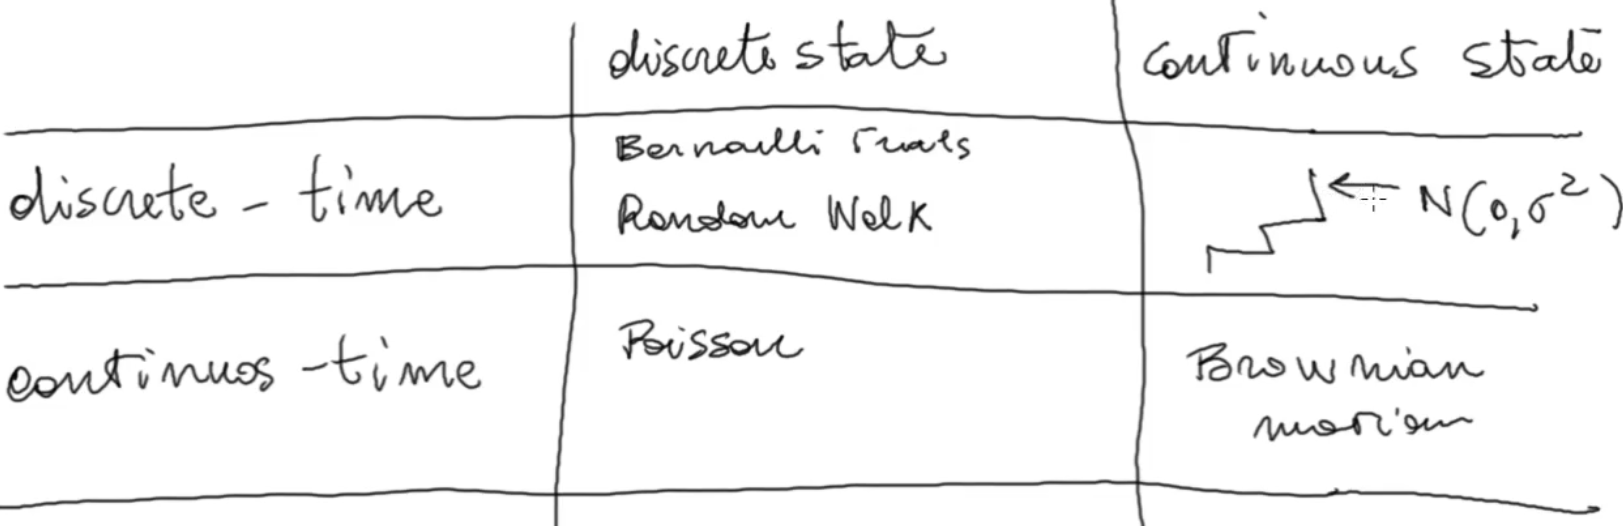 discrete state
continuous state
discrete - time
Bernoulli Trials
Random Walk
N(0,σ²)
continuos - time
Poisson
Brownian
motion